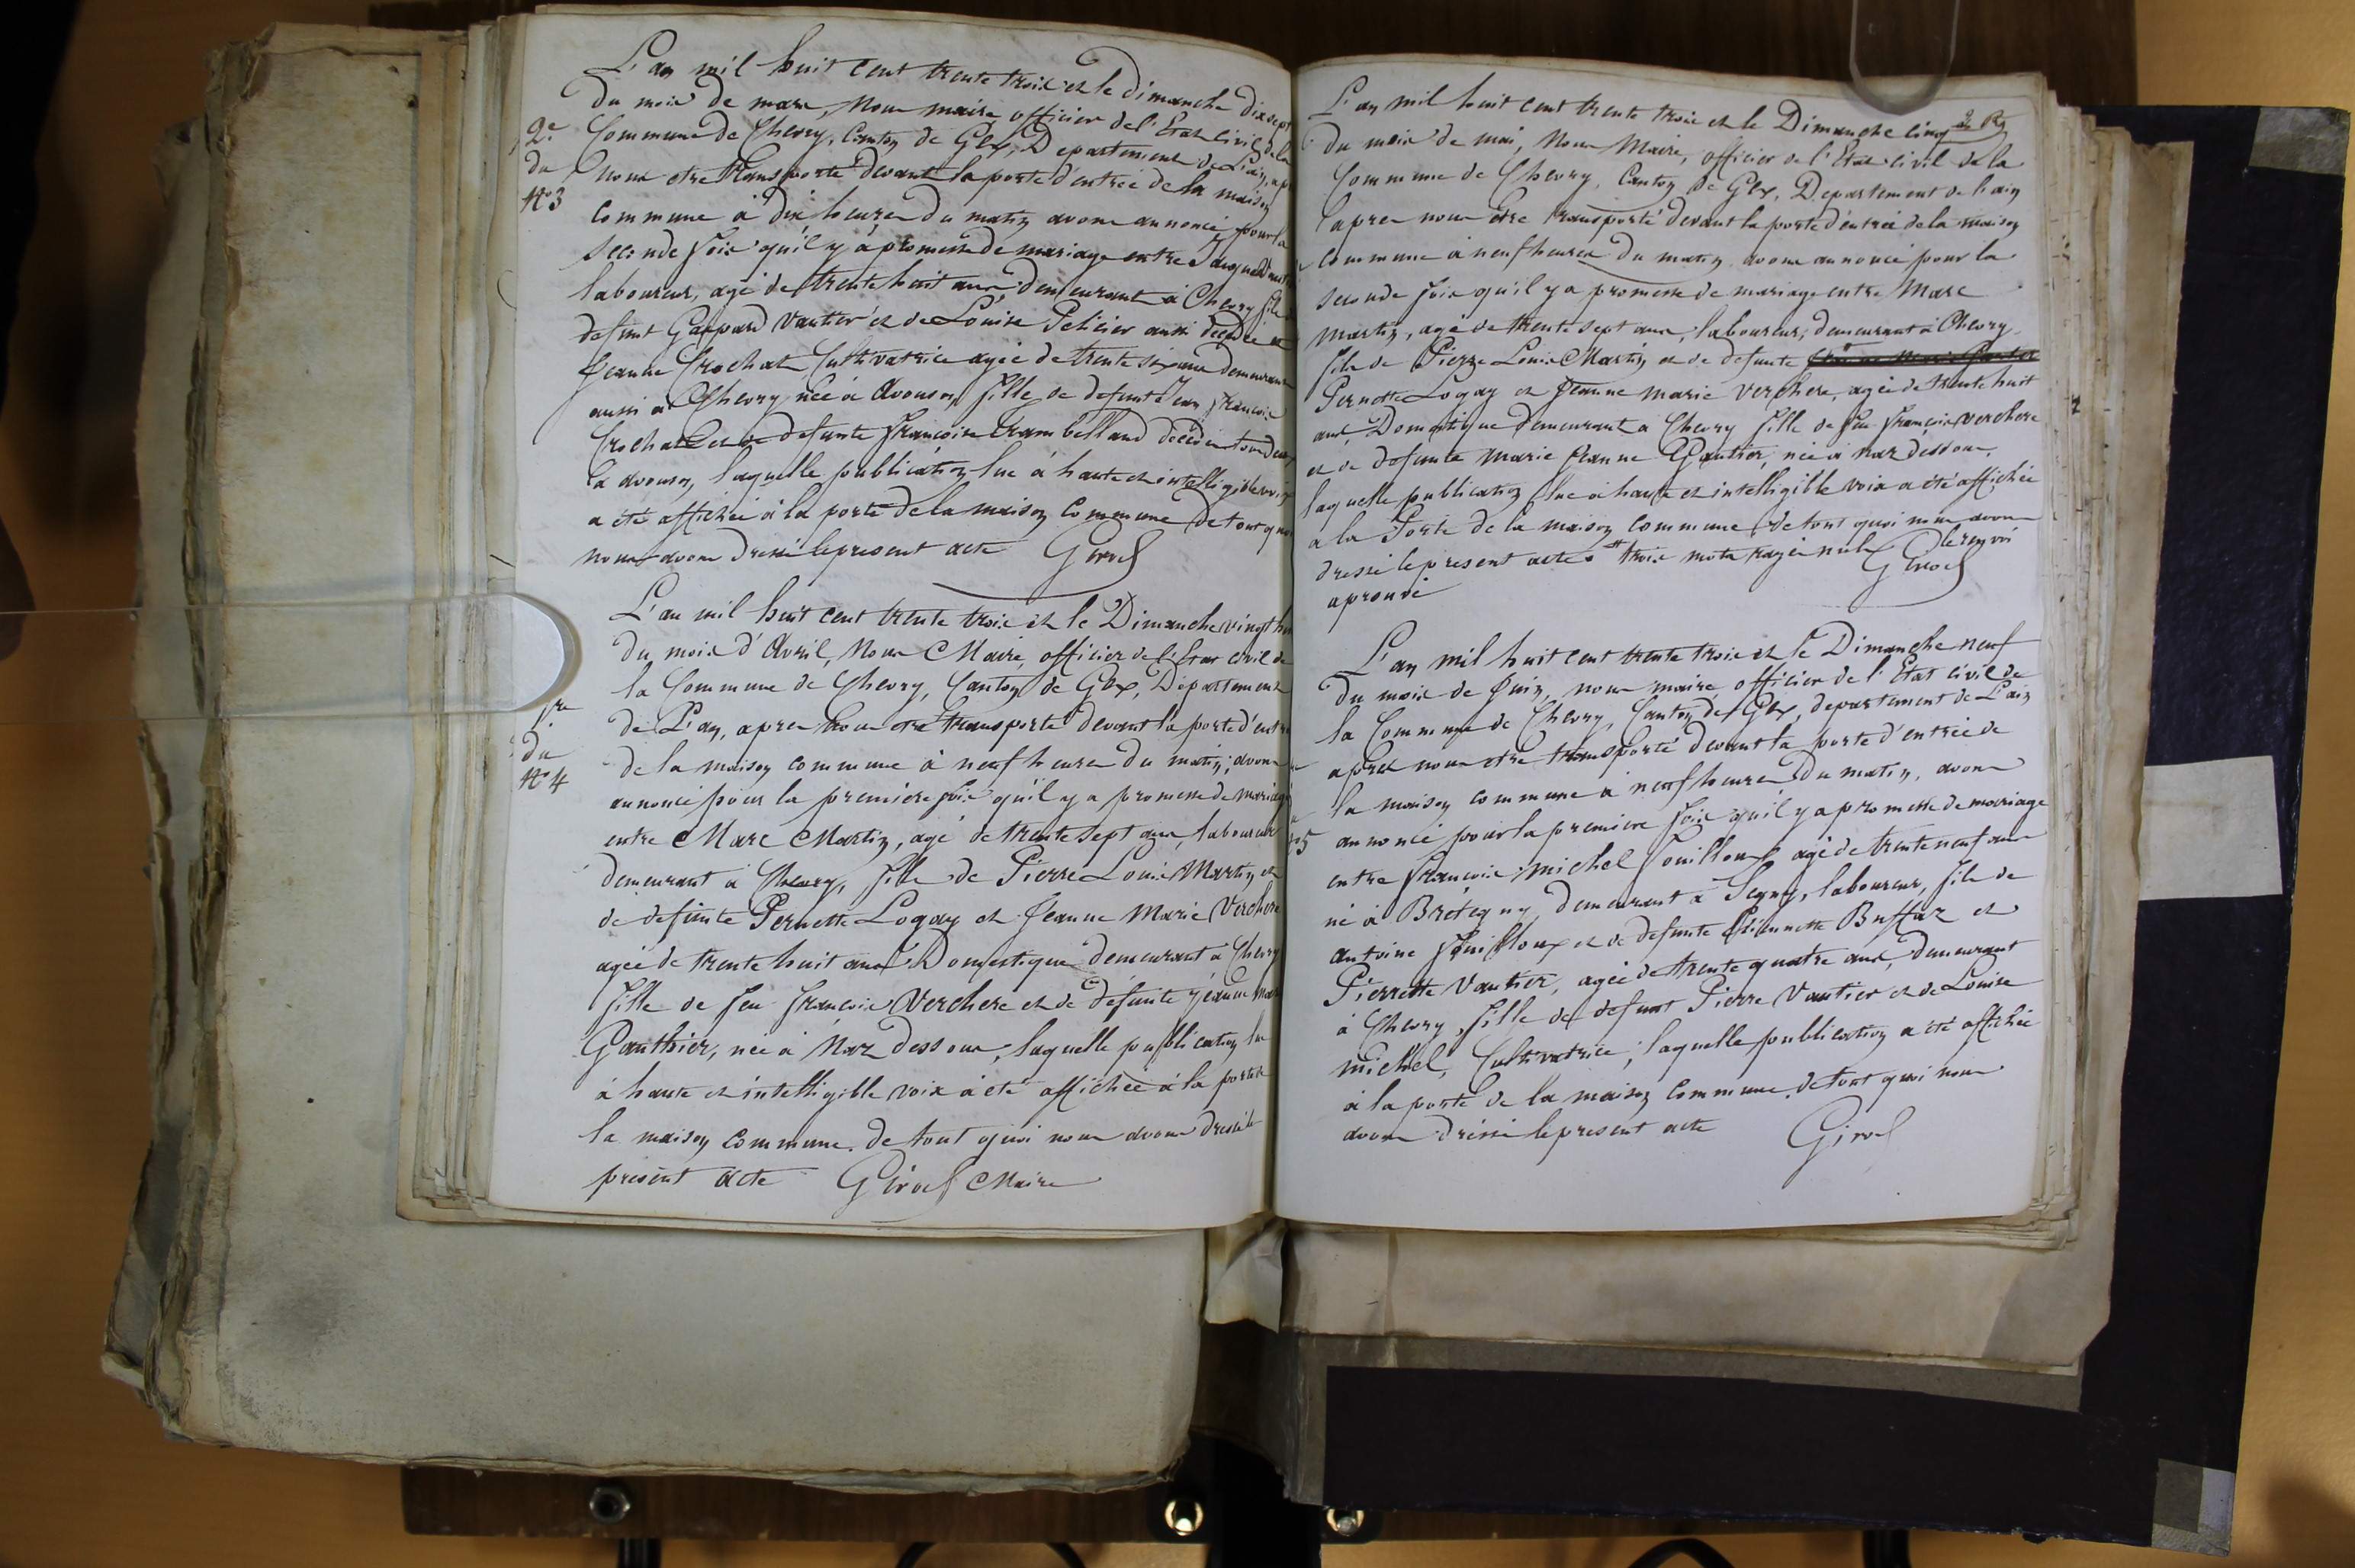 L'an mil huit cent trente trois et le dimanche dix sept
du mois de mars, Nous maire officier de l'Etat civil de la
2e Commune de Chevry, Canton de Gex, Departement de L'ain, apr
du Nous etre transporté devant la porte d'entrée de la maison
N°3 commune à dix heures du matin avons annoncé pour la
seconde fois qu'il y à promesse de mariage entre
laboureur, agé de trente huit ans demeurant à Chevry fils
defunt Gaspard Vautier et de Louise Pelicier aussi decedée et
Jeanne Crochat Cultivatrice agée de trente six ans demeurant
aussi a Chevry née à Avouson fille de defunt Jean François
Crochat et de defunte Françoise Chambelland décédés tous deux
à avouson, laquelle publication lue à haute et intelligible voix
a été affichée à la porte de la maison Commune de tout quoi
nous avons dressé le present acte Girod
L'an mil huit cent trente trois et le Dimanche vingt hu
du mois d'Avril, Nous Maire, officier de l'Etat civil de
la Commune de Chevry, Canton de Gex, Département
1re de L'ain, apres nous etre transporté devant la porte d'entré
du de la maison commune à neuf heures du matin, avons
N°4 annoncé pour la premiere fois qu'il y a promesse de mariage
entre Marc Martin, agé de trente sept ans, laboureur
demeurant à Chevry, fils de Pierre Louis Martin et
de defunte Pernette Logay et Jeanne Marie Verchere
agée de trente huit ans Domestique demeurant à Chevry
fille de feu François Verchere et de defunte jeanne Mari
Gauthier, née à Naz dessous, laquelle publication lue
à haute et intelligible voix à été affichée à la porte de
la maison commune. de tout quoi nous avons dressé le
présent acte Girod Maire
L'an mil huit cent trente trois et le Dimanche cinq
du mois de mai, Nous Maire, officier de l'Etat civil de la
Commune de Chevry, Canton de Gex, Departement de l'ain
apres nous être transporté devant la porte d'entrée de la maison
commune à neuf heures du matin avons annoncé pour la
seconde fois qu'il y a promesse de mariage entre Marc
Martin, agé de trente sept ans, laboureur, demeurant à Chevry
fils de Pierre Louis Martin et de defunte
Pernette Logay et Jeanne marie Verchere, agée de trente huit
ans, Domestique demeurant a Chevry fille de feu François Verchere
et de defunte Marie Jeanne Gautier, née à naz dessous,
laquelle publication lue à haute et intelligible voix a été affichée
a la Porte de la maison commune de tout quoi nous avons
dressé le présent acte trois mots rayés nuls le renvoi
aprouvé Girod
L'an mil huit cent trente trois et le Dimanche neuf
du mois de Juin, nous maire officier de l'Etat civil de
la Commune de Chevry, Canton de Gex, departement de L'ain
apres nous etre transporté devant la porte d'entrée de
la maison commune à neuf heures du matin, avons
5 annoncé pour la premiere fois qu'il y a promesse de mariage
entre François michel Fouilloux agé de trente neuf ans
né à Bretigny, demeurant à Segny, laboureur, fils de
antoine Fouilloux et de defunte Etiennette Buffaz et
Pierrette Vautier, agée de trente quatre ans, demeurant
à Chevry, fille de defunt Pierre Vautier et de Louise
michel, Cultivatrice, laquelle publication a été affichée
à la porte de la maison Commune. de tout quoi nous
avons dressé le present acte Girod